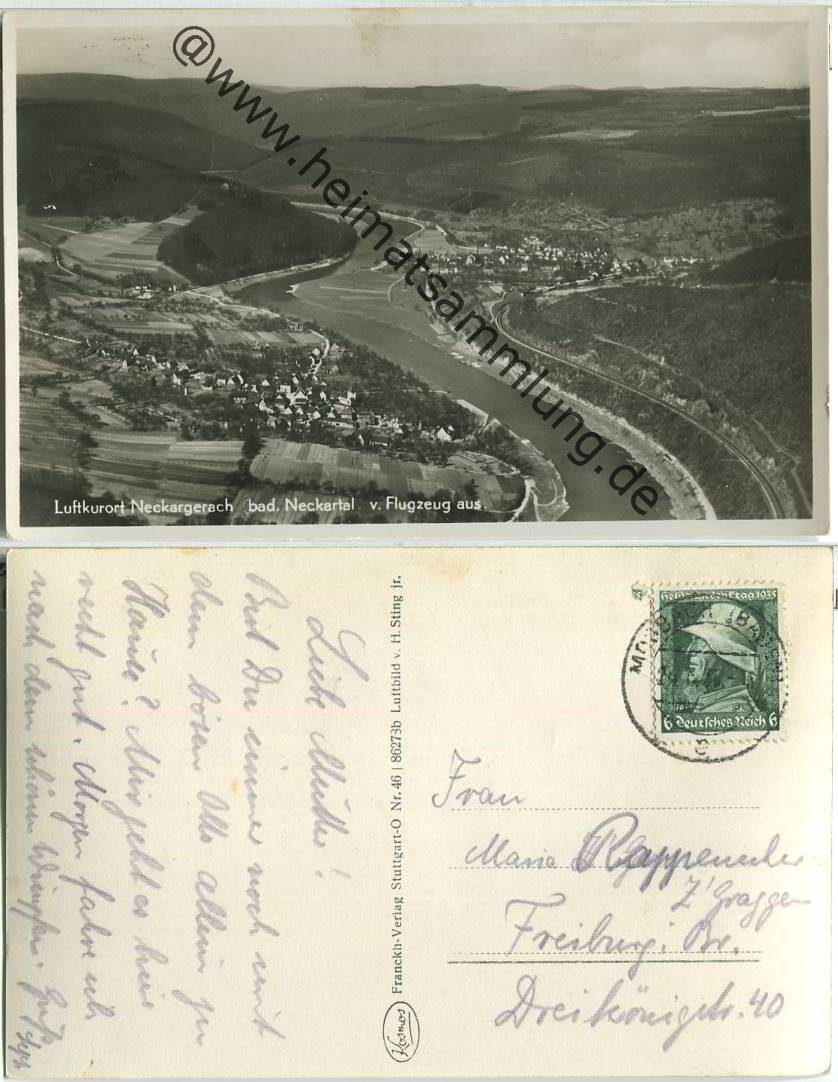 @www.heimatsammlung.de
Luftkurort Neckargerach bad. Neckartal v. Flugzeug aus.
Liebe Mutter!
Bist Du immer noch mit
dem bösen Otto allein zu
Hause? Mir geht es hier
recht gut. Morgen fahre ich
nach dem schönen Wimpfen. Gruß
Kosmos Franckh-Verlag Stuttgart-O Nr. 46 | 86273b Luftbild v. H. Sting jr.
Heldengedenktag 1935
6 Deutsches Reich 6
Frau
Maria Rappenecker
Z'Graggen
Freiburg i. Br.
Dreikönigstr. 40